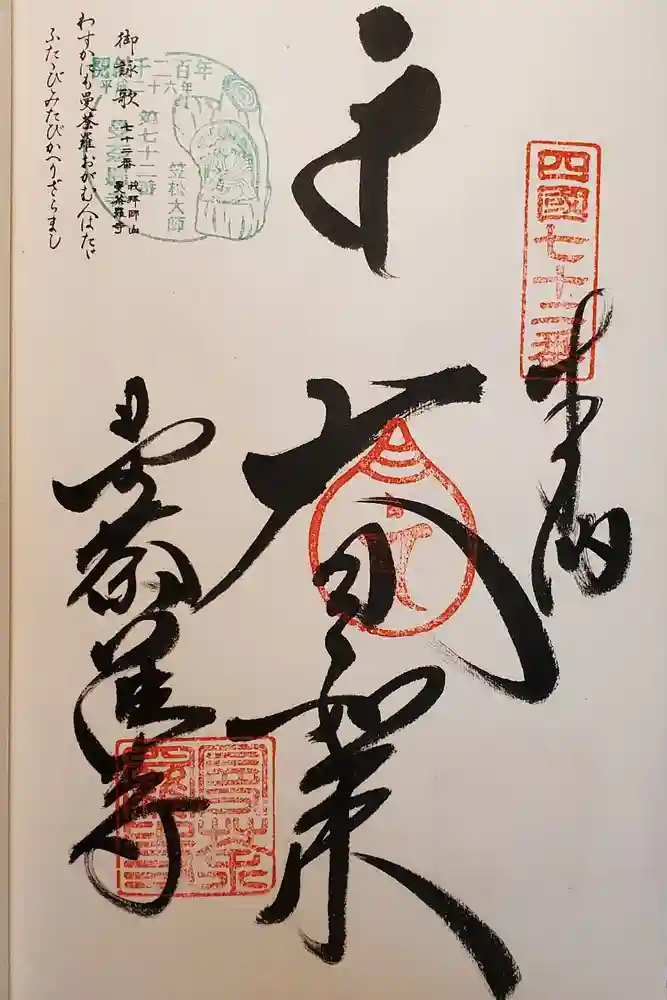 四國七十二番
奉納
大日如来
曼荼羅寺
御詠歌 七十二番 我拝師山 曼荼羅寺
わすかにも曼荼羅おがむ人はたゞ
ふたゝびみたびかへりざらまし
千二百年
第七十二番
笠松大師